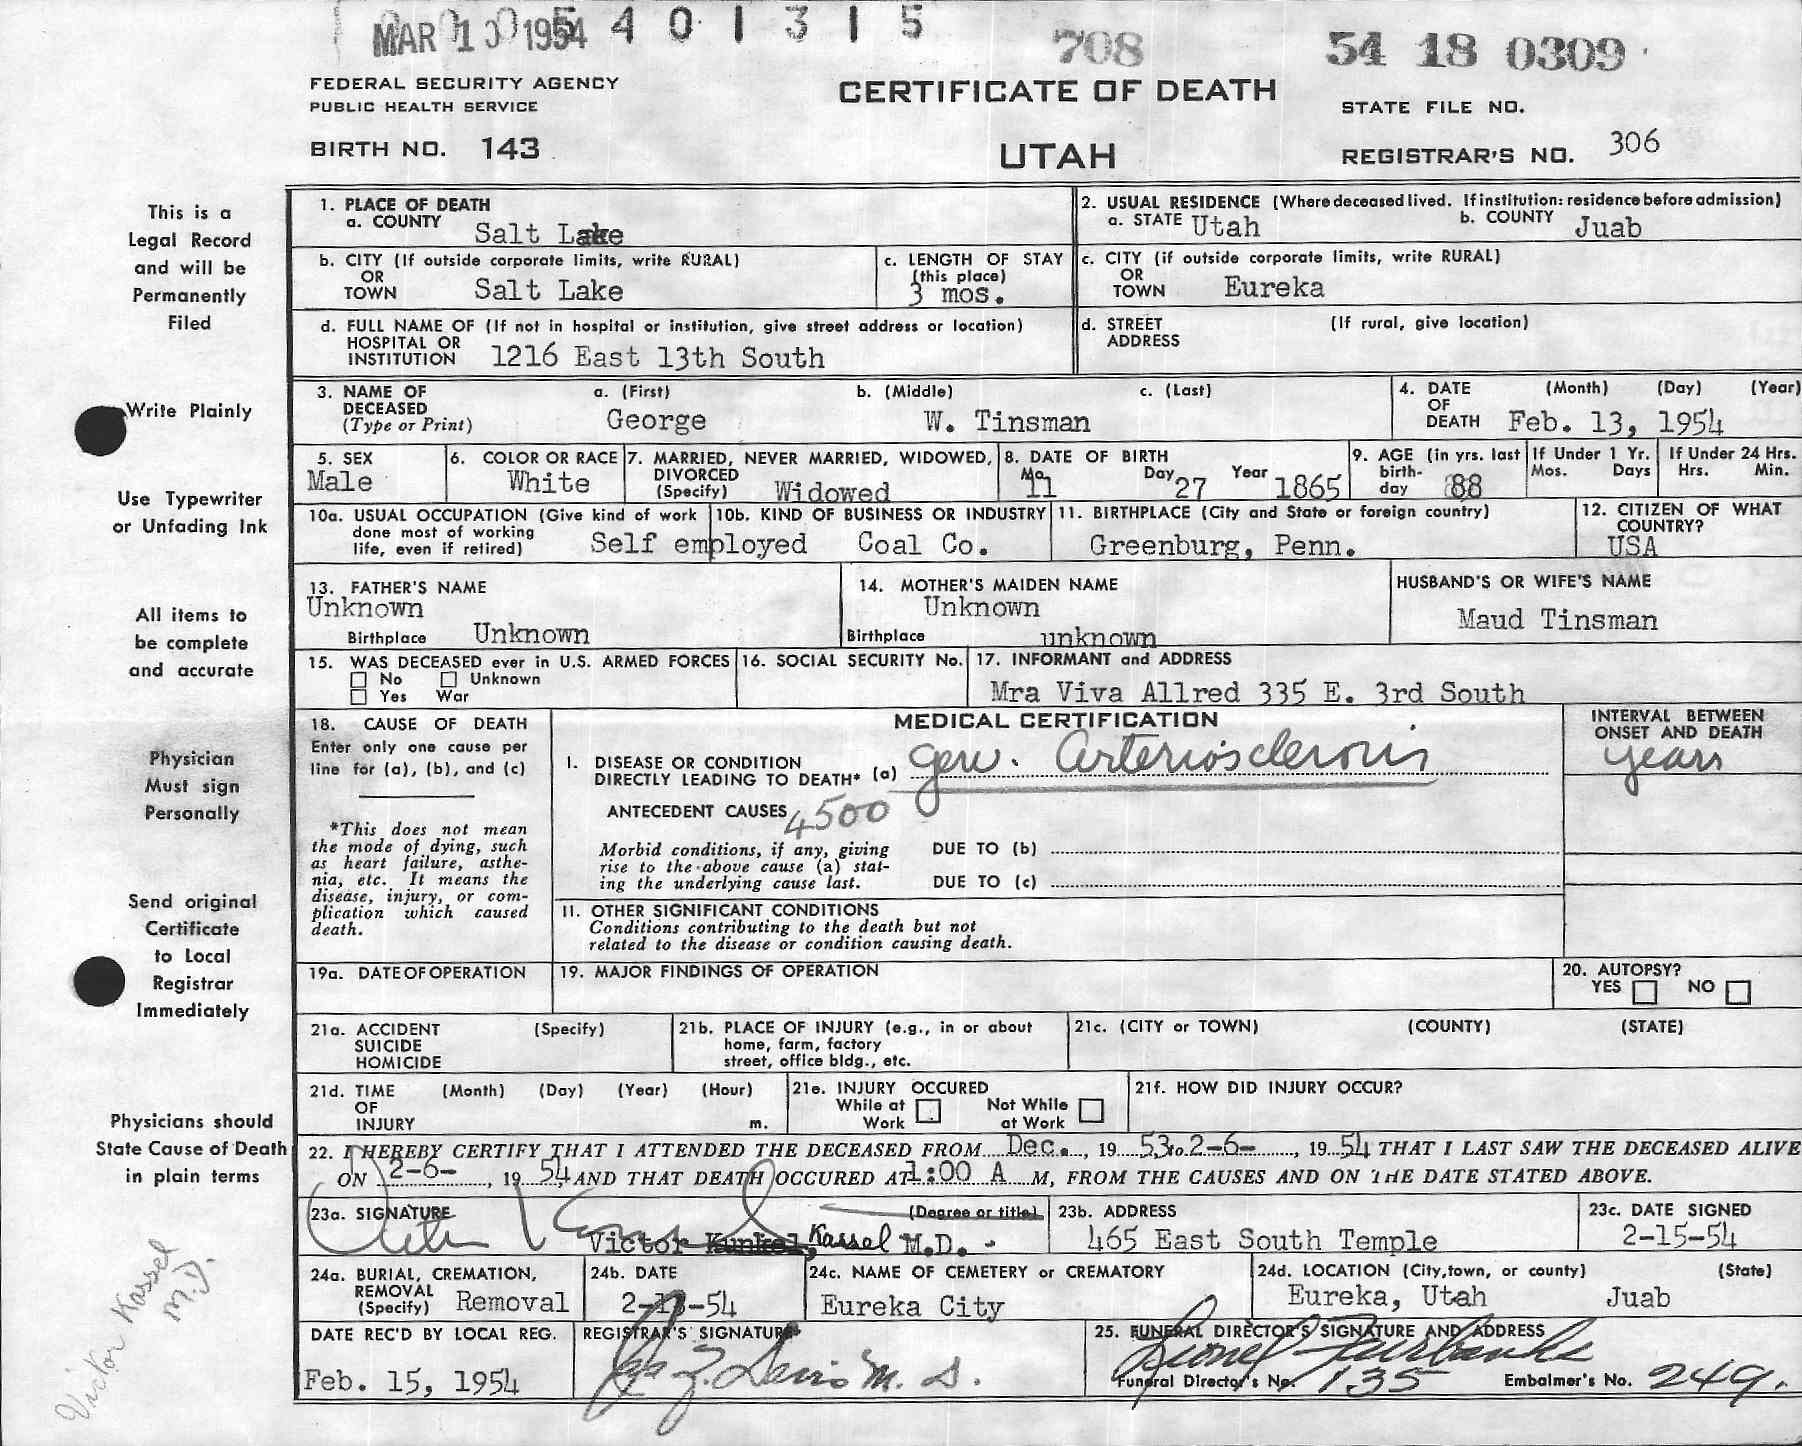 MAR 10 1954 5 4 0 1 3 1 5
708
54 18 0309
FEDERAL SECURITY AGENCY
PUBLIC HEALTH SERVICE
CERTIFICATE OF DEATH
STATE FILE NO.
BIRTH NO. 143
UTAH
REGISTRAR'S NO. 306
This is a
Legal Record
and will be
Permanently
Filed
Write Plainly
Use Typewriter
or Unfading Ink
All items to
be complete
and accurate
Physician
Must sign
Personally
Send original
Certificate
to Local
Registrar
Immediately
Physicians should
State Cause of Death
in plain terms
Victor Kassel
M.D.
1. PLACE OF DEATH
a. COUNTY Salt Lake
2. USUAL RESIDENCE (Where deceased lived. If institution: residence before admission)
a. STATE Utah b. COUNTY Juab
b. CITY (If outside corporate limits, write RURAL)
OR
TOWN Salt Lake
c. LENGTH OF STAY
(this place)
3 mos.
c. CITY (if outside corporate limits, write RURAL)
OR
TOWN Eureka
d. FULL NAME OF (If not in hospital or institution, give street address or location)
HOSPITAL OR
INSTITUTION 1216 East 13th South
d. STREET (If rural, give location)
ADDRESS
3. NAME OF a. (First) b. (Middle) c. (Last)
DECEASED
(Type or Print) George W. Tinsman
4. DATE (Month) (Day) (Year)
OF
DEATH Feb. 13, 1954
5. SEX
Male
6. COLOR OR RACE
White
7. MARRIED, NEVER MARRIED, WIDOWED,
DIVORCED
(Specify) Widowed
8. DATE OF BIRTH
Mo. 11 Day 27 Year 1865
9. AGE (in yrs. last
birth-
day 88
If Under 1 Yr.
Mos. Days
If Under 24 Hrs.
Hrs. Min.
10a. USUAL OCCUPATION (Give kind of work
done most of working
life, even if retired) Self employed
10b. KIND OF BUSINESS OR INDUSTRY
Coal Co.
11. BIRTHPLACE (City and State or foreign country)
Greenburg, Penn.
12. CITIZEN OF WHAT
COUNTRY?
USA
13. FATHER'S NAME
Unknown
Birthplace Unknown
14. MOTHER'S MAIDEN NAME
Unknown
Birthplace unknown
HUSBAND'S OR WIFE'S NAME
Maud Tinsman
15. WAS DECEASED ever in U.S. ARMED FORCES
No Unknown
Yes War
16. SOCIAL SECURITY No.
17. INFORMANT and ADDRESS
Mra Viva Allred 335 E. 3rd South
18. CAUSE OF DEATH
Enter only one cause per
line for (a), (b), and (c)
*This does not mean
the mode of dying, such
as heart failure, asthe-
nia, etc. It means the
disease, injury, or com-
plication which caused
death.
MEDICAL CERTIFICATION
I. DISEASE OR CONDITION
DIRECTLY LEADING TO DEATH* (a) gen. arteriosclerosis
ANTECEDENT CAUSES 4500
Morbid conditions, if any, giving
rise to the above cause (a) stat-
ing the underlying cause last.
DUE TO (b)
DUE TO (c)
II. OTHER SIGNIFICANT CONDITIONS
Conditions contributing to the death but not
related to the disease or condition causing death.
INTERVAL BETWEEN
ONSET AND DEATH
years
19a. DATE OF OPERATION
19. MAJOR FINDINGS OF OPERATION
20. AUTOPSY?
YES NO
21a. ACCIDENT (Specify)
SUICIDE
HOMICIDE
21b. PLACE OF INJURY (e.g., in or about
home, farm, factory
street, office bldg., etc.
21c. (CITY or TOWN) (COUNTY) (STATE)
21d. TIME (Month) (Day) (Year) (Hour)
OF
INJURY m.
21e. INJURY OCCURED
While at Not While
Work at Work
21f. HOW DID INJURY OCCUR?
22. I HEREBY CERTIFY THAT I ATTENDED THE DECEASED FROM Dec. , 19 53 to 2-6- , 19 54 THAT I LAST SAW THE DECEASED ALIVE
ON 2-6- , 19 54 AND THAT DEATH OCCURED AT 1:00 A M, FROM THE CAUSES AND ON THE DATE STATED ABOVE.
23a. SIGNATURE (Degree or title)
Victor Kunkel, Kassel M.D.
23b. ADDRESS
465 East South Temple
23c. DATE SIGNED
2-15-54
24a. BURIAL, CREMATION,
REMOVAL
(Specify) Removal
24b. DATE
24c. NAME OF CEMETERY or CREMATORY
Eureka City
24d. LOCATION (City, town, or county) (State)
Eureka, Utah Juab
DATE REC'D BY LOCAL REG.
Feb. 15, 1954
REGISTRAR'S SIGNATURE
M. D.
25. FUNERAL DIRECTOR'S SIGNATURE AND ADDRESS
Lionel Fairbanks
Funeral Director's No. 135 Embalmer's No. 249.